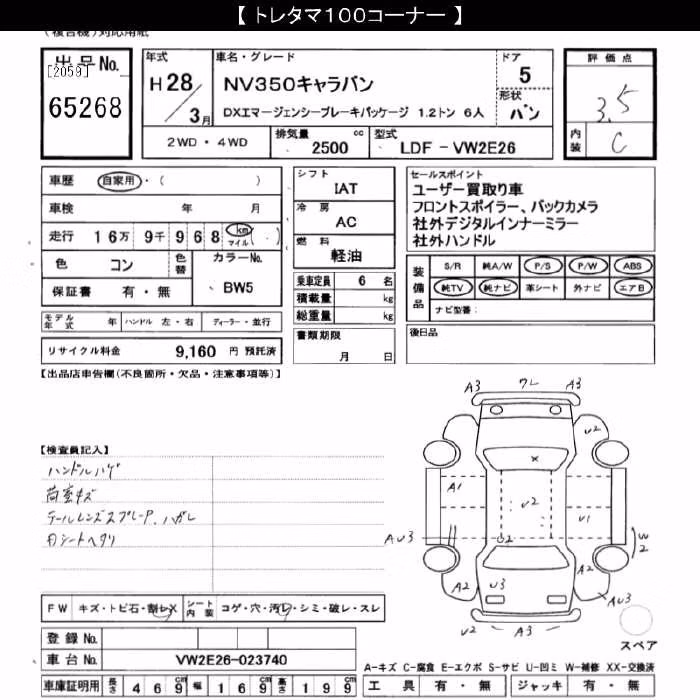 【 トレタマ100コーナー 】
(複合機)対応用紙
出品No.
[2059]
65268
年式
H28/3月
車名・グレード
NV350キャラバン
DXエマージェンシーブレーキパッケージ 1.2トン 6人
ドア
5
形状
バン
評価点
3.5
内装
C
2WD・4WD
排気量
2500 cc
型式
LDF - VW2E26
車歴 自家用・( )
車検 年 月
走行 16万 9千 968 km マイル ( )
色 コン
色替
カラーNo.
BW5
保証書 有・無
モデル年式 年 ハンドル 左・右 ディーラー・並行
リサイクル料金 9,160 円 預託済
シフト
IAT
冷房
AC
燃料
軽油
乗車定員 6 名
積載量 kg
総重量 kg
書類期限
月 日
セールスポイント
ユーザー買取り車
フロントスポイラー、バックカメラ
社外デジタルインナーミラー
社外ハンドル
装備品
S/R 純A/W P/S P/W ABS
純TV 純ナビ 革シート 外ナビ エアB
ナビ型番:
後日品
【出品店申告欄(不良箇所・欠品・注意事項等)】
【検査員記入】
ハンドルハゲ
荷室キズ
テールレンズスプレーP、ハガレ
内シートヘタリ
FW キズ・トビ石・割レX
シート内装 コゲ・穴・汚レ・シミ・破レ・スレ
登録No.
車台No. VW2E26-023740
車庫証明用 長さ 469 cm 幅 169 cm 高さ 199 cm
A3 ワレ A3
U2
A1
U2
U1
AU3
U2
W2
A2
U3
A2
AU3
U2 A3
スペア
A-キズ C-腐食 E-エクボ S-サビ U-凹ミ W-補修 XX-交換済
工具 有・無 ジャッキ 有・無